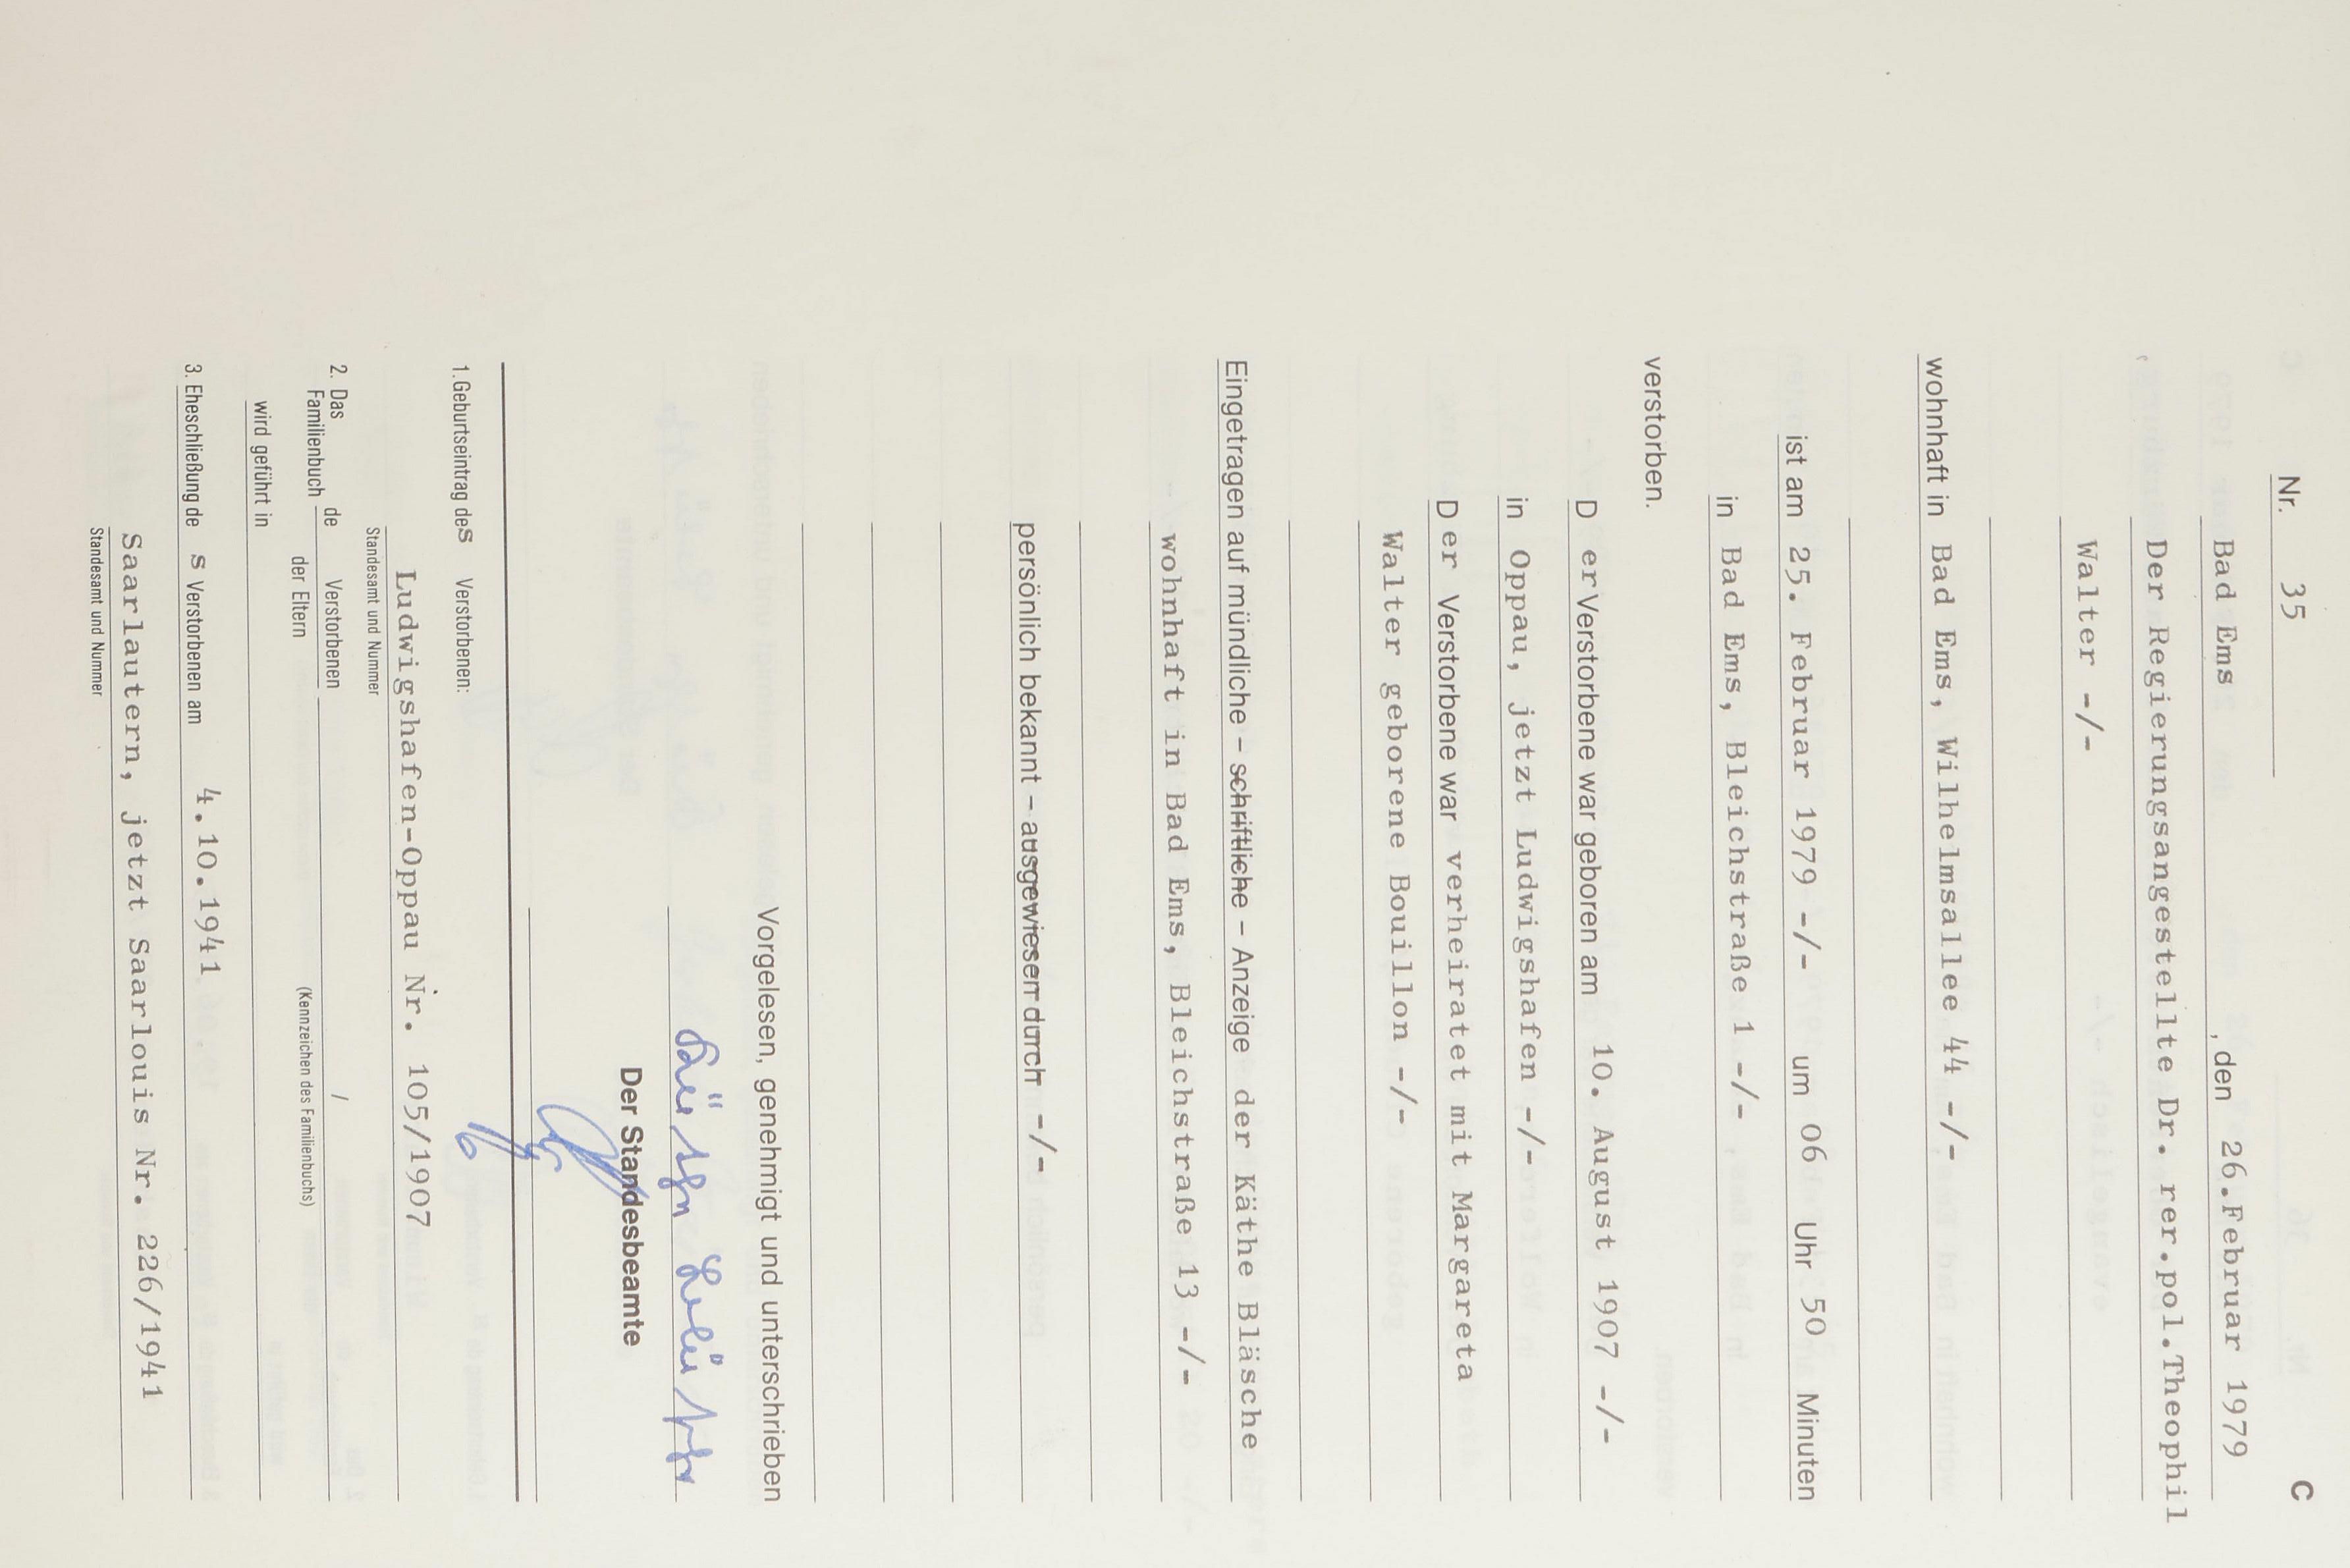 C
Nr. 35
Bad Ems, den 26.Februar 1979
Der Regierungsangestellte Dr. rer.pol.Theophil
Walter -/-
wohnhaft in Bad Ems, Wilhelmsallee 44 -/-
ist am 25. Februar 1979 -/- um 06 Uhr 50 Minuten
in Bad Ems, Bleichstraße 1 -/-
verstorben.
D er Verstorbene war geboren am 10. August 1907 -/-
in Oppau, jetzt Ludwigshafen -/-
D er Verstorbene war verheiratet mit Margareta
Walter geborene Bouillon -/-
Eingetragen auf mündliche – schriftliche – Anzeige der Käthe Bläsche
wohnhaft in Bad Ems, Bleichstraße 13 -/-
persönlich bekannt – ausgewiesen durch -/-
Vorgelesen, genehmigt und unterschrieben
Der Standesbeamte
1. Geburtseintrag des Verstorbenen:
Ludwigshafen-Oppau Nr. 105/1907
Standesamt und Nummer
2. Das Familienbuch de Verstorbenen /
der Eltern (Kennzeichen des Familienbuchs)
wird geführt in
3. Eheschließung de s Verstorbenen am 4.10.1941
Saarlautern, jetzt Saarlouis Nr. 226/1941
Standesamt und Nummer